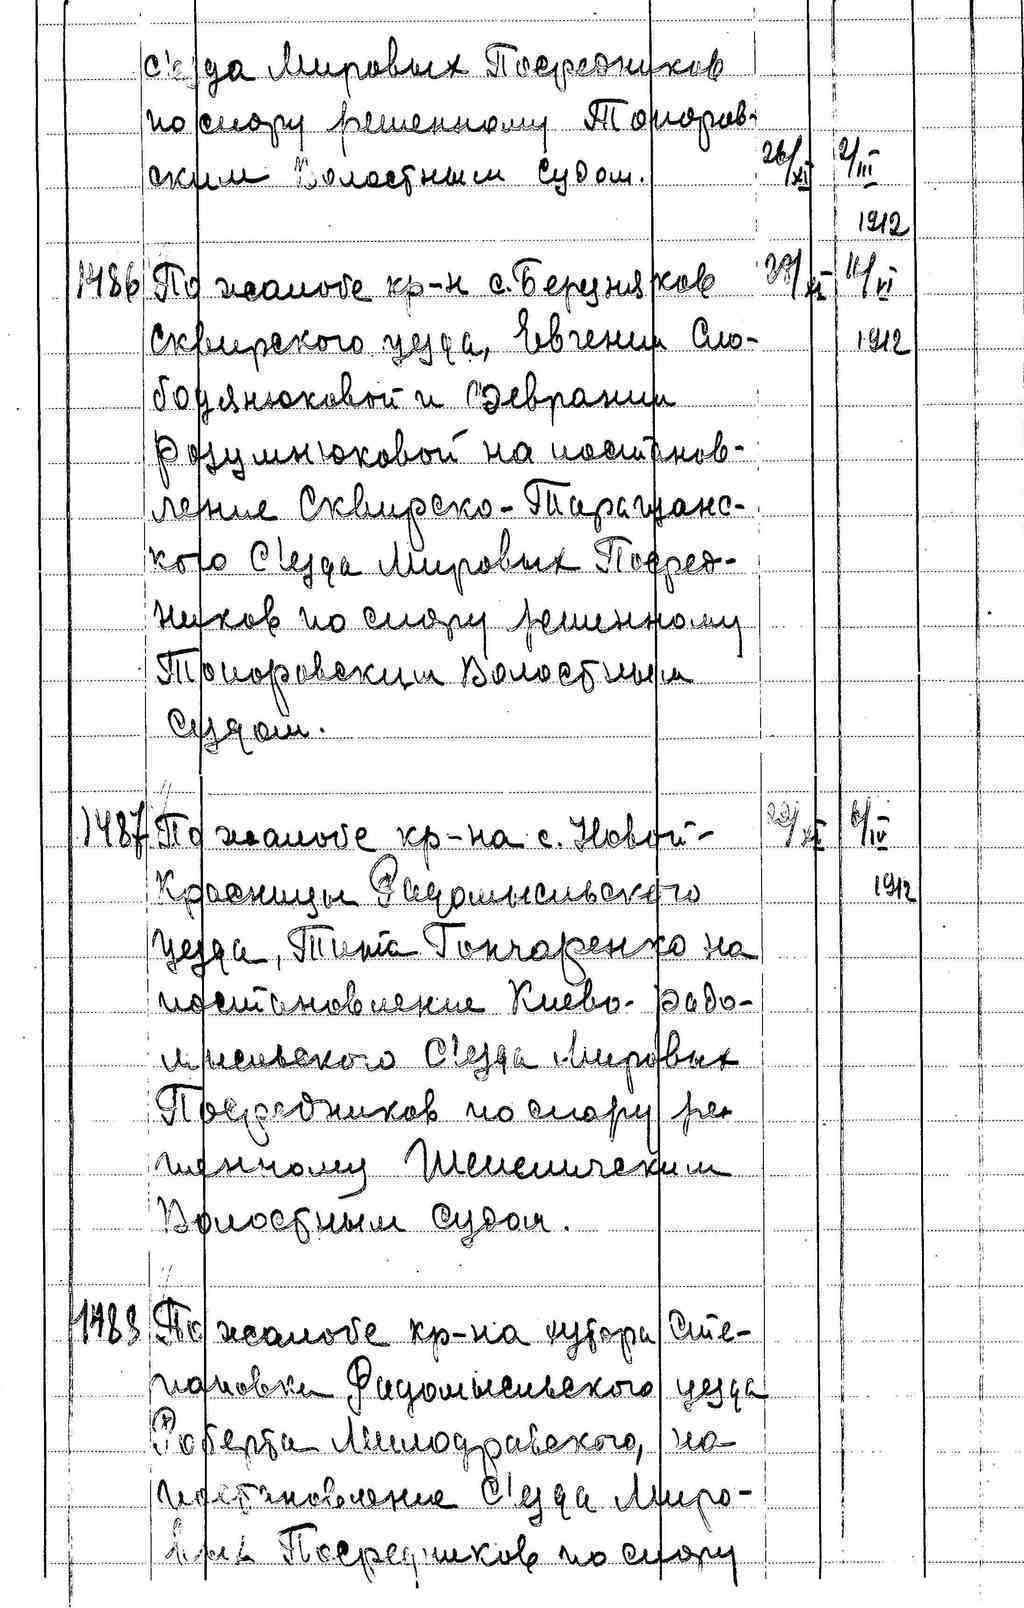 с'езда Мировых Посредников
по спору решенному Топоров-
ским Волостным Судом. 26/XI 2/III
1912
1486 По жалобе кр-н с. Березняков 29/XI 11/VI
Сквирского уезда, Евгении Сло- 1912
бодянюковой и Севрании
Розумнюковой на постанов-
ление Сквирско-Таращанс-
кого С'езда Мировых Посред-
ников по спору решенному
Топоровским Волостным
Судом.
1487 По жалобе кр-на с. Новой- 22/XI 6/IV
Красницы Радомысльского 1912
уезда, Тита Гончаренко на
постановление Киево-Радо-
мысльского С'езда Мировых
Посредников по спору ре-
шенному Шепеличским
Волостным Судом.
1488 По жалобе кр-на хутора Сте-
пановки Радомысльского уезда
Роберта Милодравского, на
постановление С'езда Миро-
вых Посредников по спору